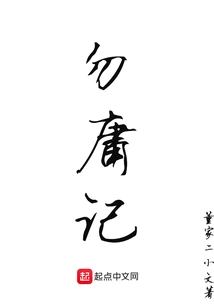 勿庸记
起 起点中文网
董家二小文著